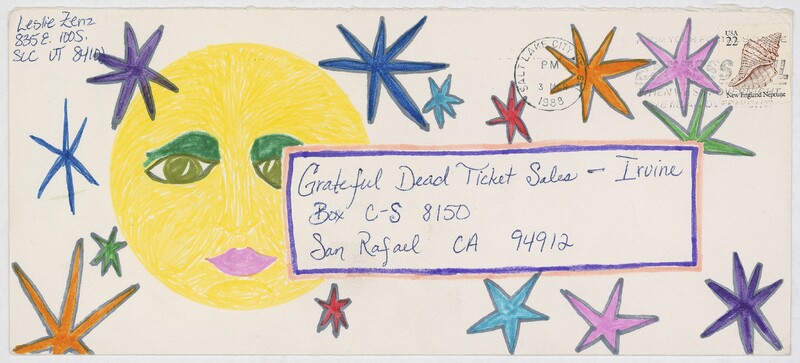 Leslie Zenz
835 E. 100 S.
SLC UT 84102
SALT LAKE CITY
PM
1988
USA
22
New England Neptune
Grateful Dead Ticket Sales - Irvine
Box C-S 8150
San Rafael CA 94912